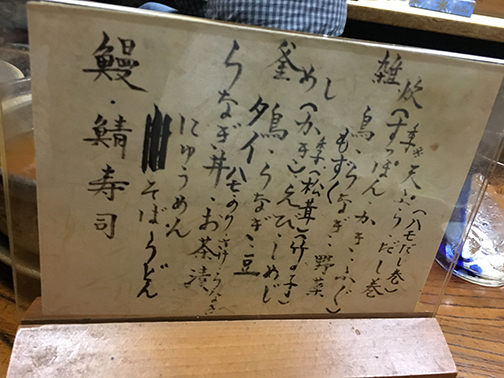 天ぷら・だし巻(ハモだし巻)
雑炊(すっぽん・かき・ふぐ)
鳥・うなぎ・野菜
もずく
釜めし(かき)(松茸)
鳥・うなぎ・えびしめじ
タイ・豆
うなぎ丼・お茶漬
にゅうめん
そば・うどん
鰻・鯖寿司